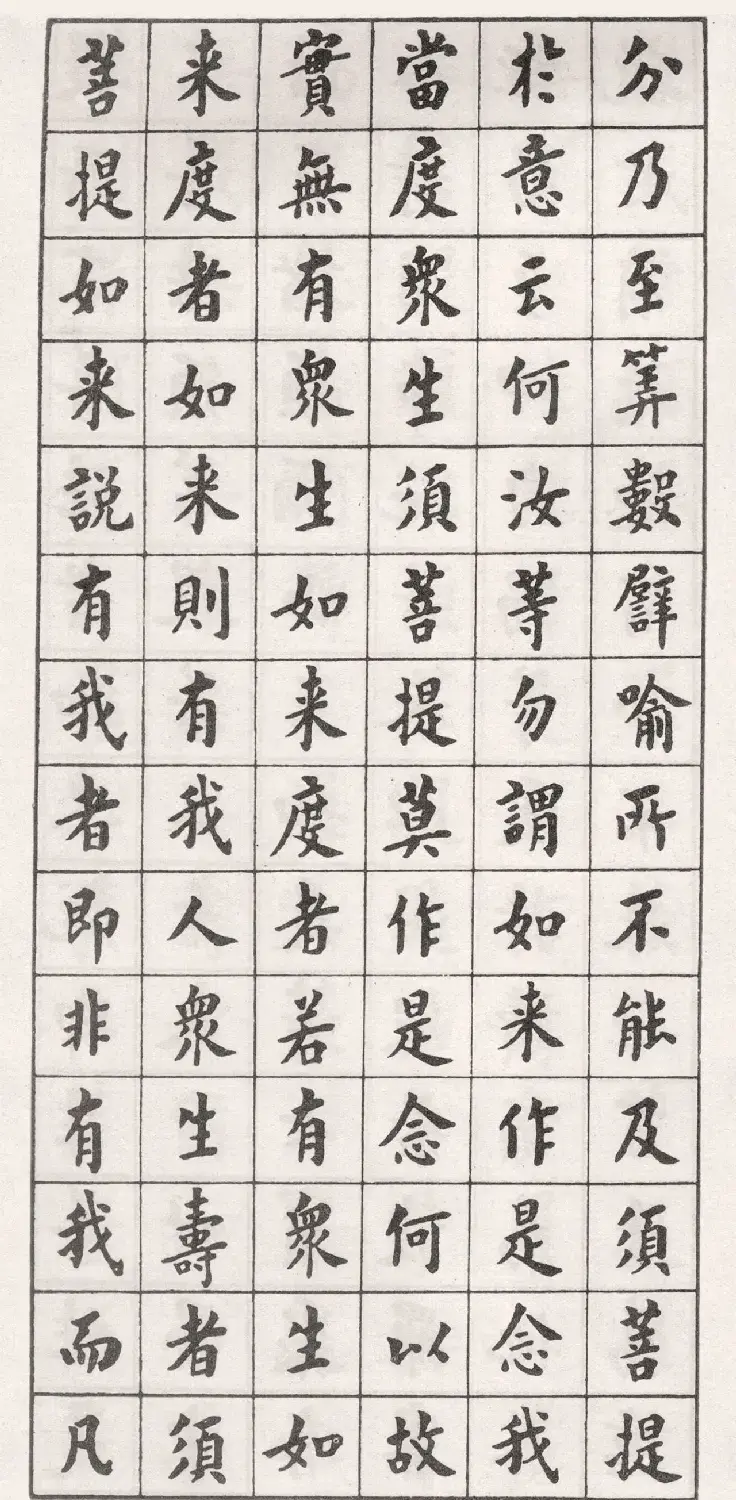 分乃至筭數譬喻所不能及須菩提
於意云何汝等勿謂如来作是念我
當度衆生須菩提莫作是念何以故
實無有衆生如来度者若有衆生如
来度者如来則有我人衆生壽者須
菩提如来説有我者即非有我而凡